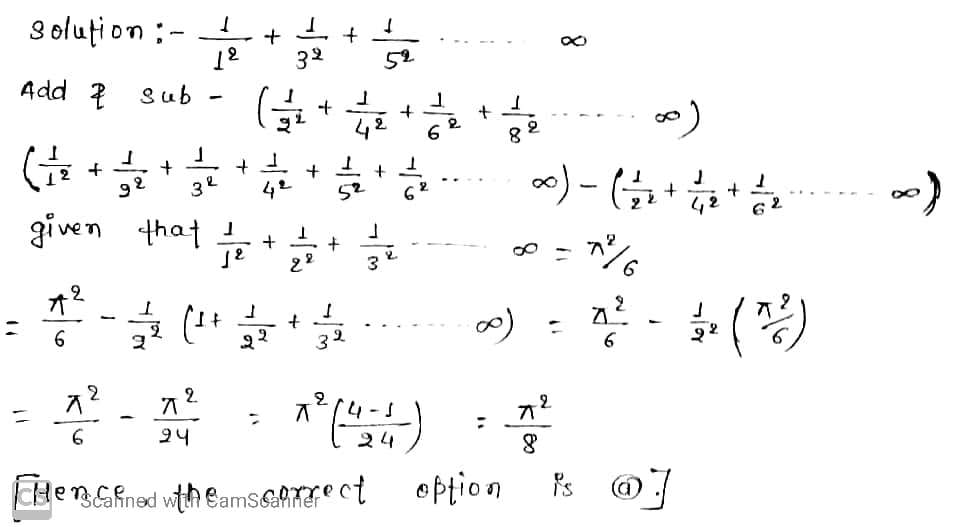 Solution :- 1/1² + 1/3² + 1/5² ........ ∞
Add & sub - (1/2² + 1/4² + 1/6² + 1/8² ........ ∞)
(1/1² + 1/2² + 1/3² + 1/4² + 1/5² + 1/6² ...... ∞) - (1/2² + 1/4² + 1/6² ........ ∞)
given that 1/1² + 1/2² + 1/3² -------- ∞ = π²/6
= π²/6 - 1/2² (1 + 1/2² + 1/3² ........ ∞) = π²/6 - 1/2² (π²/6)
= π²/6 - π²/24 = π² (4-1/24) = π²/8
[Hence the correct option is ⓐ.]
CS Scanned with CamScanner